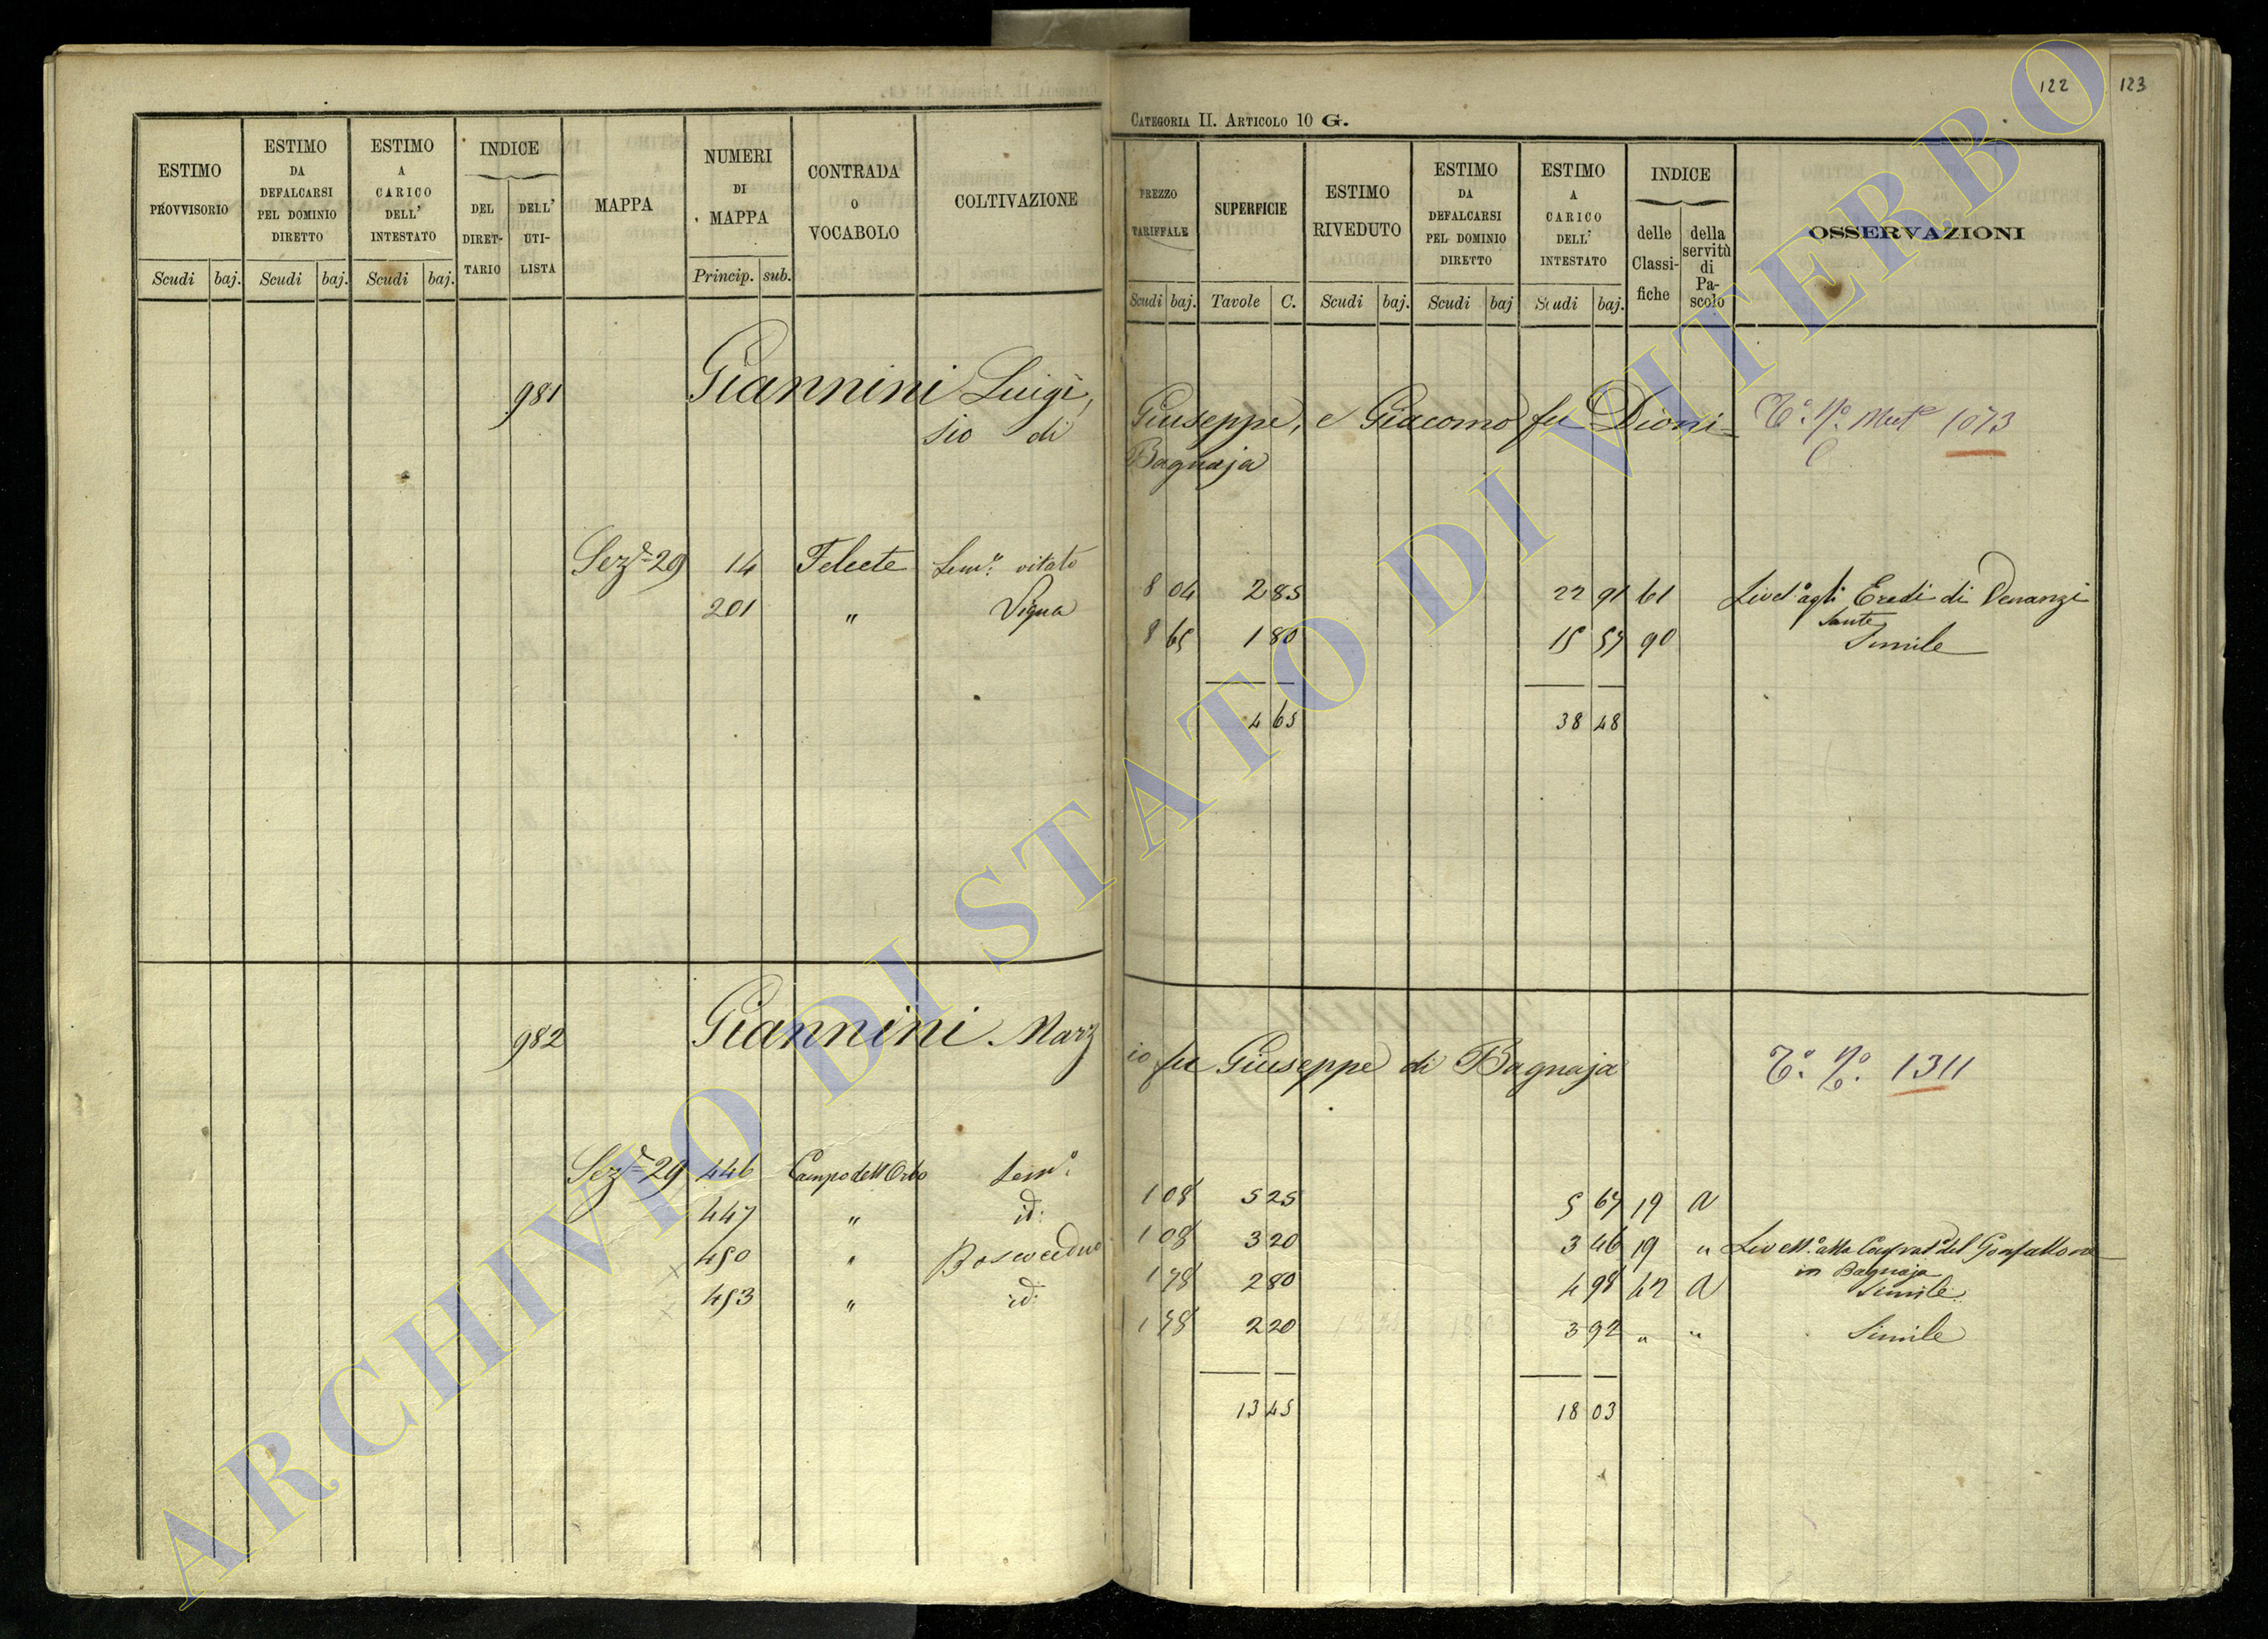 122
123
CATEGORIA II. ARTICOLO 10 G.
ESTIMO PROVVISORIO
Scudi baj.
ESTIMO DA DEFALCARSI PEL DOMINIO DIRETTO
Scudi baj.
ESTIMO A CARICO DELL' INTESTATO
Scudi baj.
INDICE
DEL DIRET- TARIO
DELL' UTI- LISTA
MAPPA
NUMERI DI MAPPA
Princip. sub.
CONTRADA O VOCABOLO
COLTIVAZIONE
PREZZO TARIFFALE
Scudi baj.
SUPERFICIE
Tavole C.
ESTIMO RIVEDUTO
Scudi baj.
ESTIMO DA DEFALCARSI PEL DOMINIO DIRETTO
Scudi baj
ESTIMO A CARICO DELL' INTESTATO
Scudi baj.
INDICE
delle Classi- fiche
della servitù di Pa- scolo
OSSERVAZIONI
981 Giannini Luigi, Giuseppe, e Giacomo fu Dioni- 1073
sio di Bagnaja
Sez.e 29 14 Felcete Sem.o vitato 8 04 2 85 22 91 61 Livel.o agli Eredi di Venanzi
Sante
201 " Vigna 8 65 1 80 15 57 90 Simile
4 65 38 48
982 Giannini Marzio fu Giuseppe di Bagnaja 1311
Sez.e 29 446 Campo dell'Orbo Sem.o 1 08 5 25 5 67 19 a
447 " id: 1 08 3 20 3 46 19 " Livell.o alla Confrat.a del Gonfalone
in Bagnaja
450 " Bosco ceduo 1 78 2 80 4 98 42 a Simile
453 " id: 1 78 2 20 3 92 " " Simile
13 45 18 03
ARCHIVIO DI STATO DI VITERBO